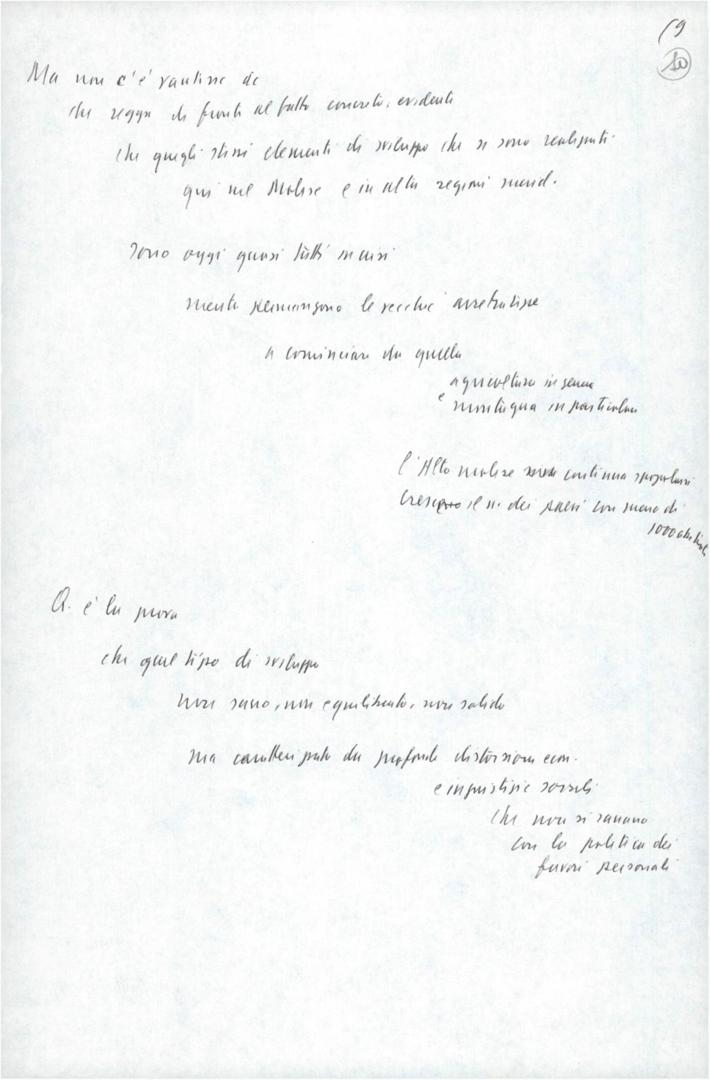 19
10
Ma non c'è vanterie dc
che regga di fronte al fatto concreto, evidente
che quegli stessi elementi di sviluppo che si sono realizzati
qui nel Molise e in altre regioni merid.
sono oggi quasi tutti in crisi
mentre permangono le vecchie arretratezze
a cominciare da quella
agricoltura in genere
e montagna in particolare
l'Alto Molise continua spopolarsi
Cresce il n. dei paesi con meno di
1000 abitanti
Q. è la prova
che quel tipo di sviluppo
non sano, non equilibrato, non solido
ma caratterizzato da profonde distorsioni econ.
e ingiustizie sociali
che non si sanano
con la politica dei
favori personali